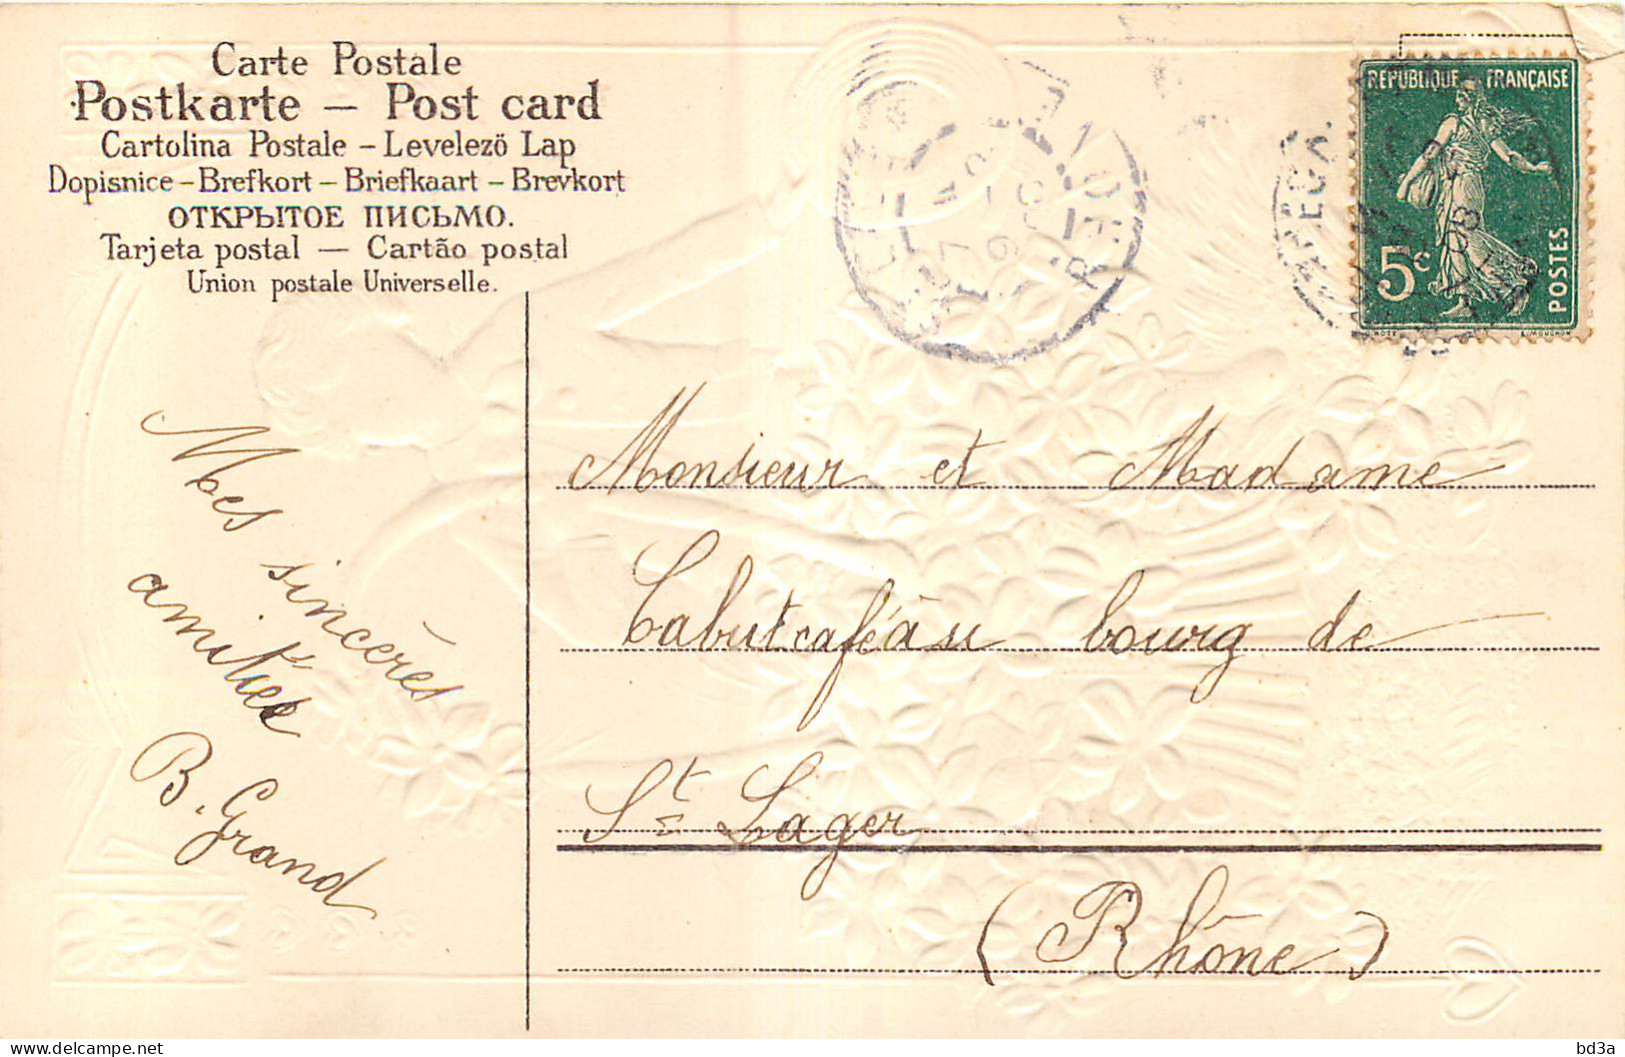 Carte Postale
Postkarte — Post card
Cartolina Postale – Levelezö Lap
Dopisnice – Brefkort – Briefkaart – Brevkort
ОТКРЫТОЕ ПИСЬМО.
Tarjeta postal — Cartão postal
Union postale Universelle.
RÉPUBLIQUE FRANÇAISE
5c
POSTES
E. MOUCHON
Mes sincères
amitiés
B. Grand
Monsieur et Madame
Cabut café au bourg de
St Lager
(Rhône)
bd3a